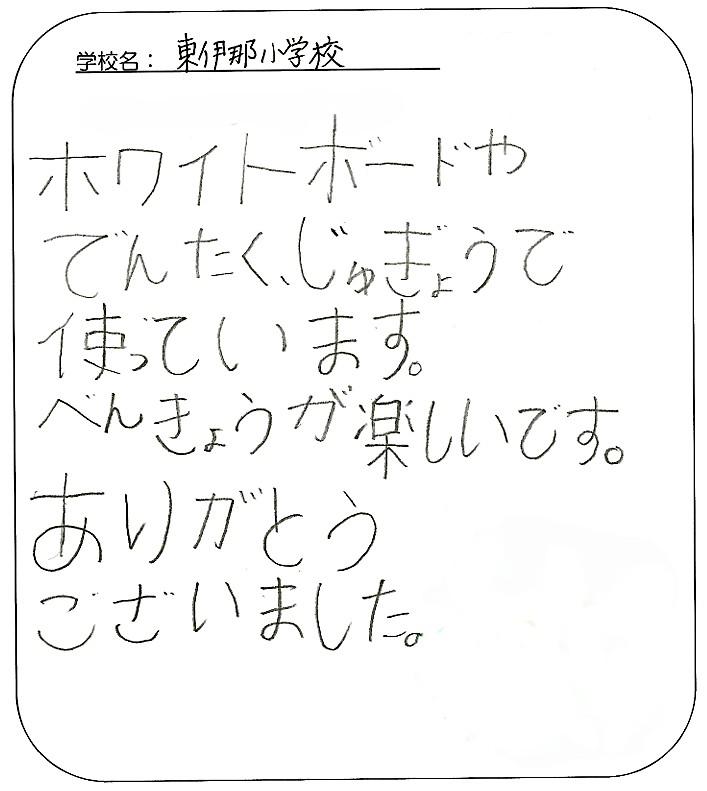 学校名： 東伊那小学校
ホワイトボードや
でんたく、じゅぎょうで
使っています。
べんきょうが楽しいです。
ありがとう
ございました。